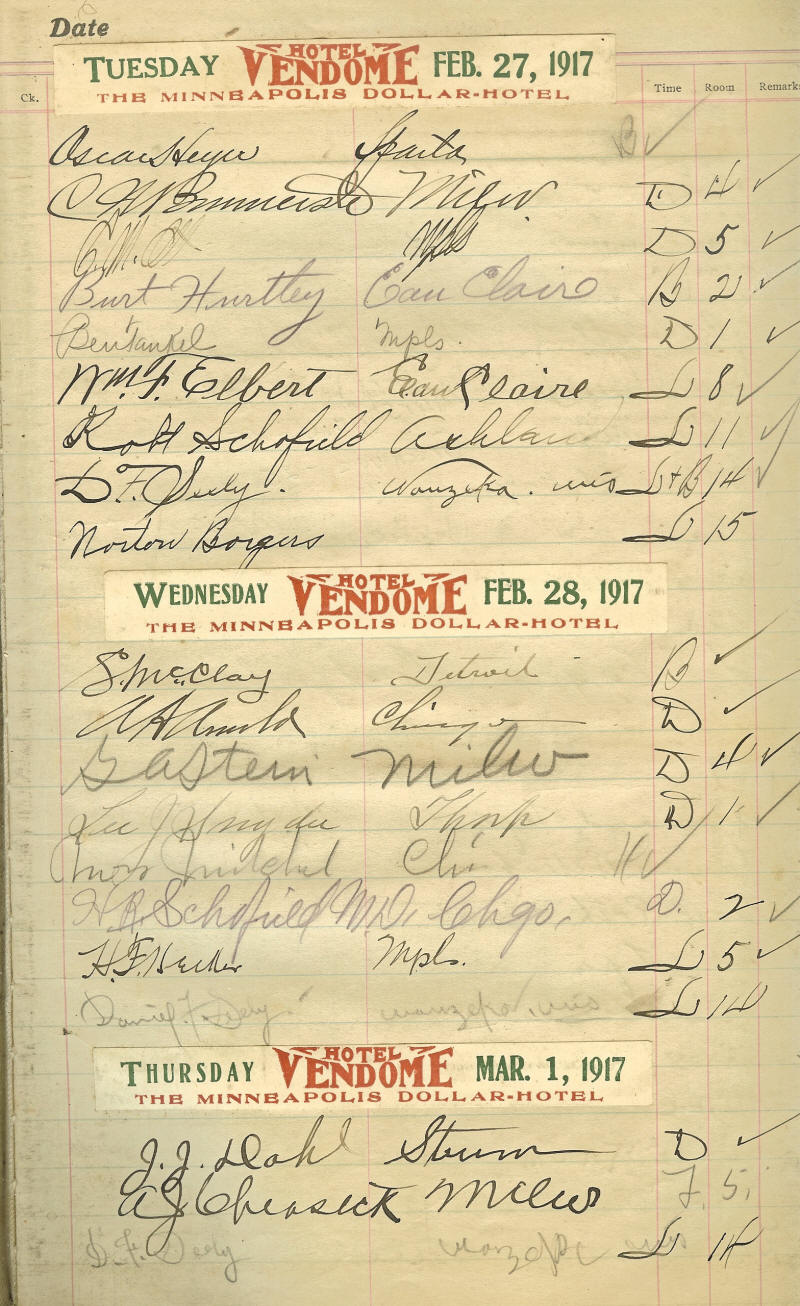 Date
TUESDAY HOTEL VENDOME FEB. 27, 1917
THE MINNEAPOLIS DOLLAR-HOTEL
Ck. Time Room Remarks
Oscar Heyer Sparta B ✓
Milw D 4 ✓
C. M. Mpls D 5 ✓
Burt Hurtley Eau Claire B 2 ✓
Ben Yankel Mpls. D 1 ✓
Wm. F. Elbert Eau Claire L 8 ✓
Robt Schofield Ashland L 11 ✓
D. F. Seely. Wauzeka. Wis L + B 14 ✓
Norton Borgers L 15
WEDNESDAY HOTEL VENDOME FEB. 28, 1917
THE MINNEAPOLIS DOLLAR-HOTEL
S. McClay Detroit B ✓
A H Arnold Chicago D ✓
Stein Milw D 4 ✓
Lee J Thorp D 1 ✓
Mitchel Chi H ✓
H. R. Schofield M.D. Chgo. D. 2 ✓
H. F. Mpls. L 5 ✓
Daniel F. Seely Wauzeka, Wis L 14
THURSDAY HOTEL VENDOME MAR. 1, 1917
THE MINNEAPOLIS DOLLAR-HOTEL
J. J. Dahl Strum D ✓
A J Milw F. 5.
D. F. Seely Wauzeka Wis L 14